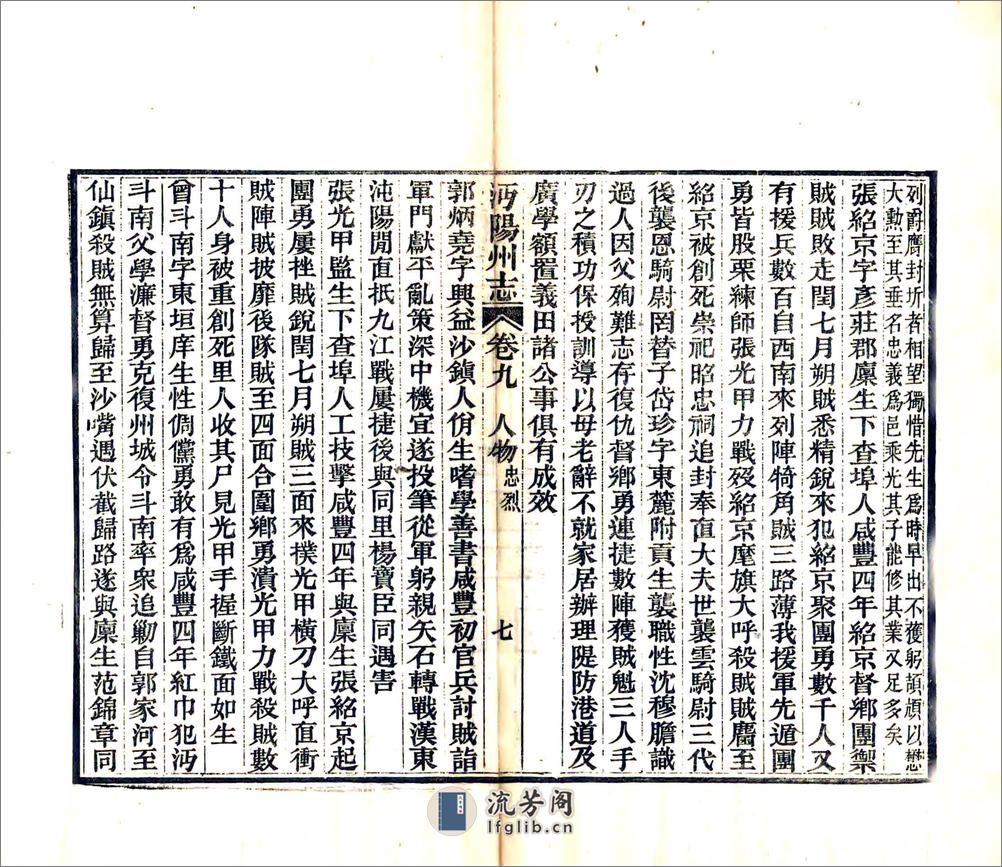 列爵膺封圻者相望獨惜先生爲時早出不獲躬頡頏以懋
大勲至其垂名忠義爲邑乘光其子能修其業又足多矣
張紹京字彥莊郡廩生下查埠人咸豐四年紹京督鄉團禦
賊賊敗走閏七月朔賊悉精銳來犯紹京聚團勇數千人又
有援兵數百自西南來列陣犄角賊三路薄我援軍先遁團
勇皆股栗練師張光甲力戰歿紹京麾旗大呼殺賊賊麕至
紹京被創死崇祀昭忠祠追封奉直大夫世襲雲騎尉三代
後襲恩騎尉罔替子岱珍字東麓附貢生襲職性沈穆膽識
過人因父殉難志存復仇督鄉勇連捷數陣獲賊魁三人手
刃之積功保授訓導以母老辭不就家居辦理隄防港道及
廣學額置義田諸公事俱有成效
沔陽州志 卷九 人物 忠烈 七
郭炳堯字興益沙鎮人佾生嗜學善書咸豐初官兵討賊詣
軍門獻平亂策深中機宜遂投筆從軍躬親矢石轉戰漢東
沌陽閒直抵九江戰屢捷後與同里楊寶臣同遇害
張光甲監生下查埠人工技擊咸豐四年與廩生張紹京起
團勇屢挫賊銳閏七月朔賊三面來撲光甲橫刀大呼直衝
賊陣賊披靡後隊賊至四面合圍鄉勇潰光甲力戰殺賊數
十人身被重創死里人收其尸見光甲手握斷鐵面如生
曾斗南字東垣庠生性倜儻勇敢有爲咸豐四年紅巾犯沔
斗南父學濂督勇克復州城令斗南率衆追勦自郭家河至
仙鎮殺賊無算歸至沙嘴遇伏截歸路遂與廩生范錦章同
流芳阁
lfglib.cn